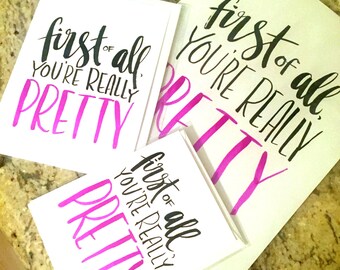 first of all,
YOU'RE REALLY
PRETTY
first of all,
YOU'RE REALLY
PRETTY
first of all
YOU'RE REALLY
PRETTY